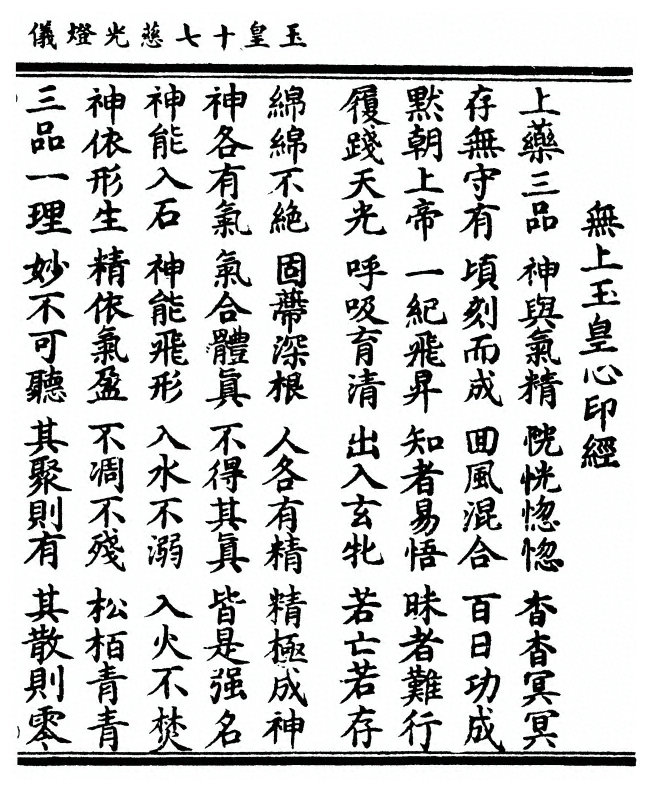 玉皇十七慈光燈儀
無上玉皇心印經
上藥三品 神與氣精 恍恍惚惚 杳杳冥冥
存無守有 頃刻而成 囬風混合 百日功成
默朝上帝 一紀飛昇 知者易悟 昧者難行
履踐天光 呼吸育清 出入玄牝 若亡若存
綿綿不絶 固蔕深根 人各有精 精極成神
神各有氣 氣合體眞 不得其眞 皆是强名
神能入石 神能飛形 入水不溺 入火不焚
神依形生 精依氣盈 不凋不殘 松栢青青
三品一理 妙不可聽 其聚則有 其散則零